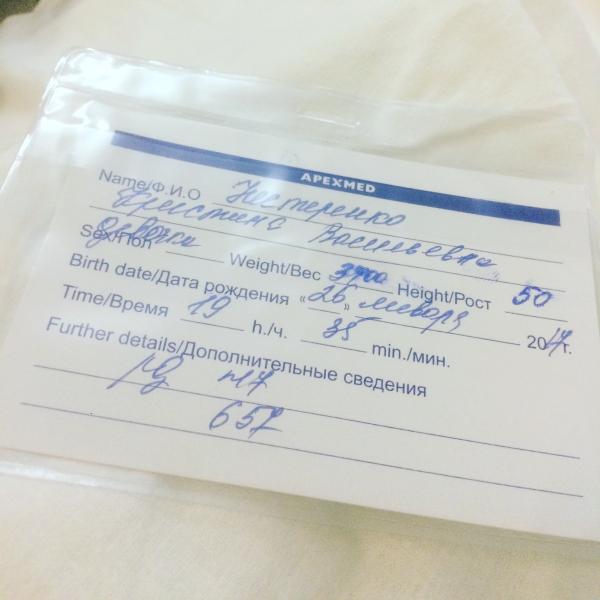 APEXMED
Name/Ф.И.О Нестеренко
Кристина Васильевна
Sex/Пол девочка Weight/Вес 3900 Height/Рост 50
Birth date/Дата рождения «26» января 2017г.
Time/Время 19 h./ч. 35 min./мин.
Further details/Дополнительные сведения
657